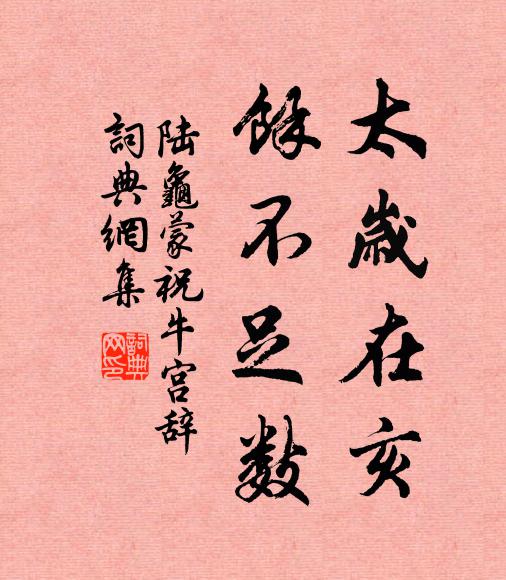 太歲在亥
餘不足數
陆龜蒙祝牛宫辞
詞典網集
詞典网印